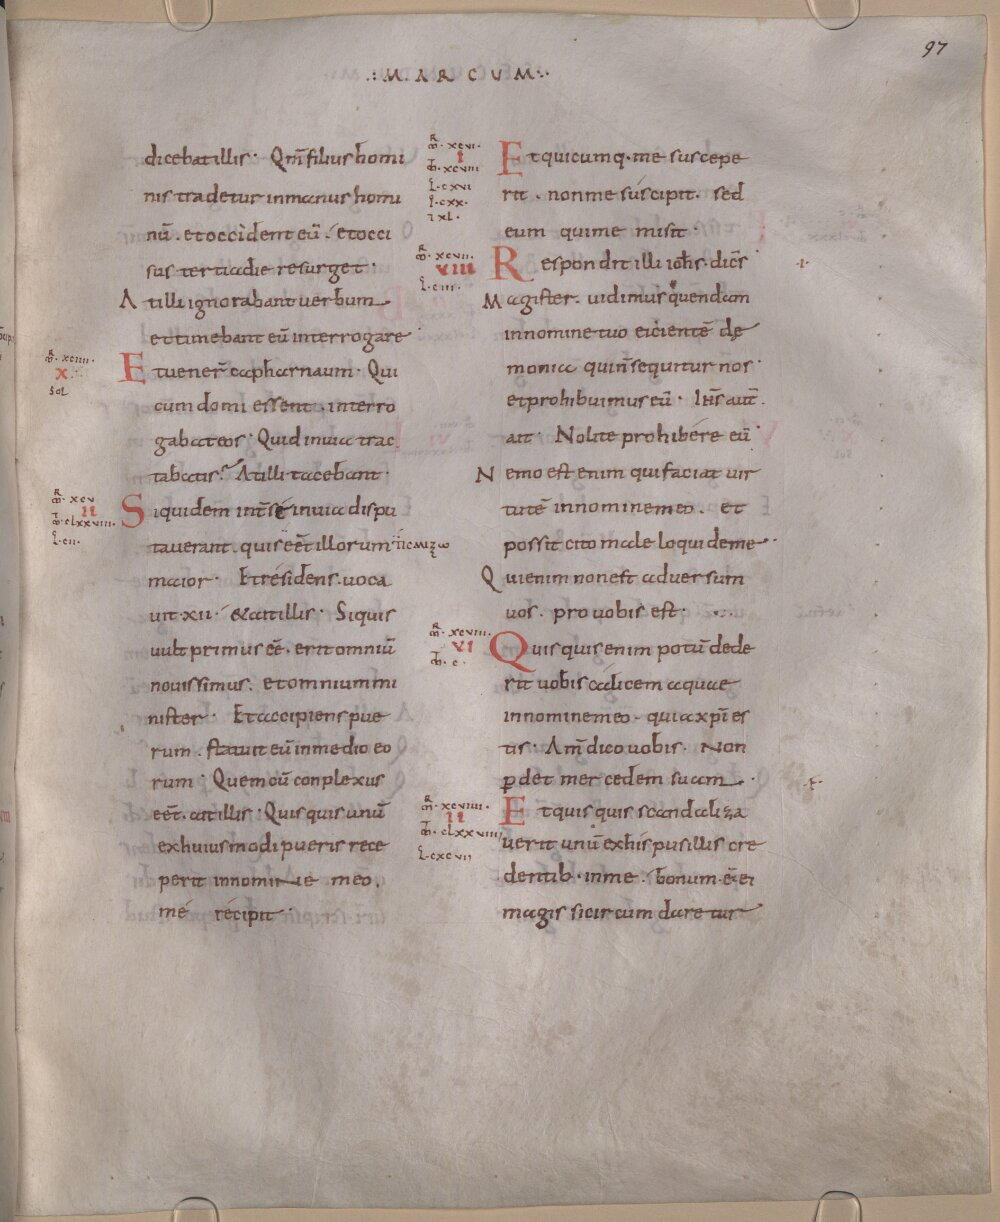 97
·:MARCUM:·
dicebat illis · Qm̄ filius homi
nis tradetur in manus homi
nū . et occident eū . et occi
sus tertia die resurget ·
At illi ignorabant verbum
et timebant eū interrogare
R̄
m̄ · xciiii ·
X
sol
Et uener̄ capharnaum · Qui
cum domi essent . interro
gabat eos · Quid in uia trac
tabatis? At illi tacebant ·
R̄
m̄ · xcv
II
m̄ · clxxviii ·
L · cii ·
Siquidem int̄ se in uia dispu
tauerant . quis eēt illorum
maior · Et residens . uoca
uit · xii · & ait illis · Siquis
uult primus eē . erit omniū
nouissimus . et omnium mi
nister · Et accipiens pue
rum . statuit eū in medio eo
rum · Quem cū conplexus
eēt . ait illis · Quisquis unū
ex huiusmodi pueris rece
perit in nomine meo .
me recipit ·
R̄
m̄ · xcvi ·
I
m̄ · xcviii
L · cxvi
L · cxx ·
ixl ·
Et quicumq · me suscepe
rit . non me suscipit · sed
eum qui me misit ·
R̄
m̄ · xcvii ·
VIII
L · ciii ·
Respondit illi ioh̄s · dicēs
Magister . uidimus quendam
in nomine tuo eicientē dę
monia qui n̄ sequitur nos ·
et prohibuimus eū · Ih̄s aut̄ .
ait · Nolite prohibere eū ·
Nemo est enim qui faciat uir
tutē in nomine meo . et
possit cito male loqui de me ·
Qui enim non est aduersum
uos . pro uobis est ·
R̄
m̄ · xcviii ·
VI
m̄ · c ·
Quisquis enim potū dede
rit uobis calicem aquae
in nomine meo · quia xp̄i es
tis · Am̄ dico uobis · Non
ꝑdet mercedem suam ·
R̄
m̄ · xcviiii ·
II
m̄ · clxxviiii
L · cxcvii
Et quisquis scandaliza
uerit unū ex his pusillis cre
dentib · in me . bonum · ē · ei
magis si circumdaretur